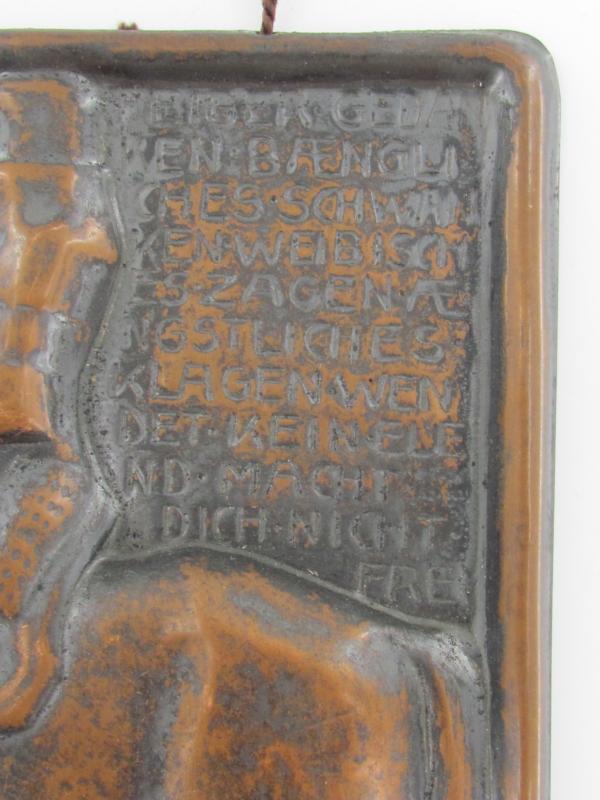 FEIGER·GEDA
KEN·BÆNGLI
CHES·SCHWAN
KEN·WEIBISCH
ES·ZAGEN·Æ
NGSTLICHES
KLAGEN·WEN
DET·KEIN·ELE
ND·MACHT
DICH·NICHT
FREI